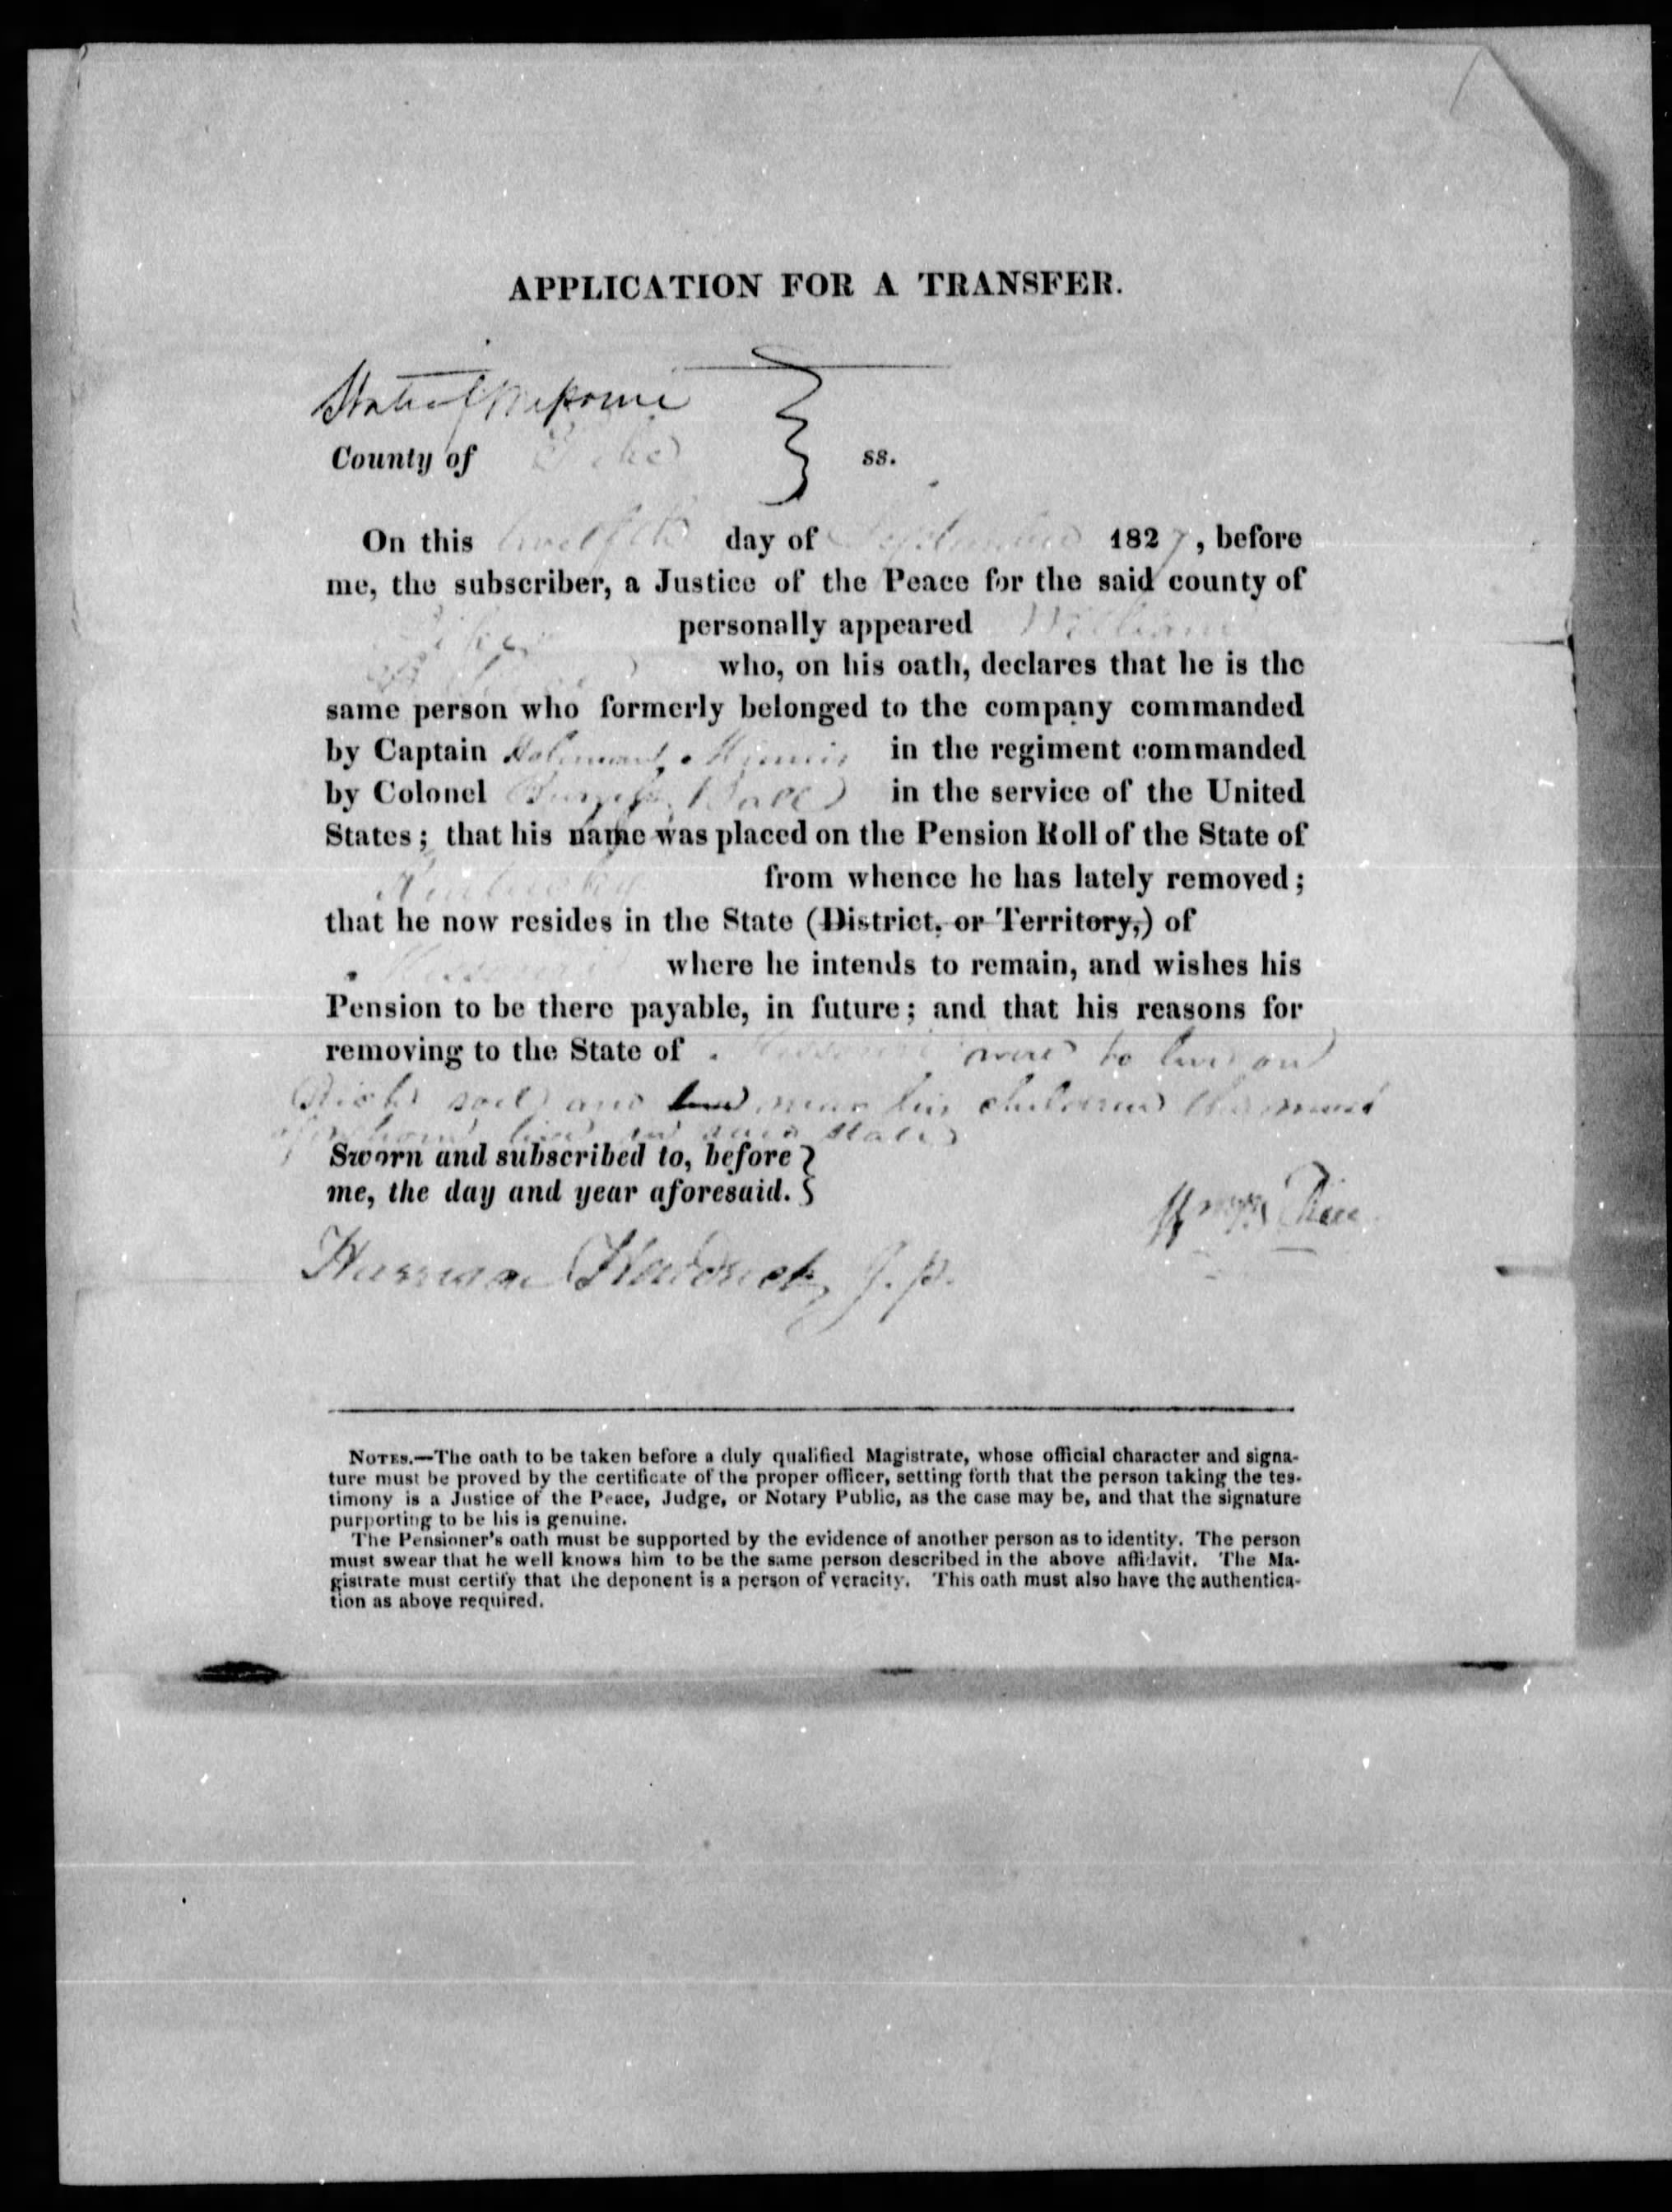 APPLICATION FOR A TRANSFER.
State of Missouri
County of Pike ss.
On this twelfth day of September 1827, before
me, the subscriber, a Justice of the Peace for the said county of
Pike personally appeared William
who, on his oath, declares that he is the
same person who formerly belonged to the company commanded
by Captain Holman Minnis in the regiment commanded
by Colonel Burgess Ball in the service of the United
States; that his name was placed on the Pension Roll of the State of
Kentucky from whence he has lately removed;
that he now resides in the State (District, or Territory,) of
Missouri where he intends to remain, and wishes his
Pension to be there payable, in future; and that his reasons for
removing to the State of Missouri were to live on
Rich soil and near his children the most
of whom live in said State
Sworn and subscribed to, before
me, the day and year aforesaid.
Wm Rice
J. P.
NOTES.—The oath to be taken before a duly qualified Magistrate, whose official character and signa-
ture must be proved by the certificate of the proper officer, setting forth that the person taking the tes-
timony is a Justice of the Peace, Judge, or Notary Public, as the case may be, and that the signature
purporting to be his is genuine.
The Pensioner's oath must be supported by the evidence of another person as to identity. The person
must swear that he well knows him to be the same person described in the above affidavit. The Ma-
gistrate must certify that the deponent is a person of veracity. This oath must also have the authentica-
tion as above required.